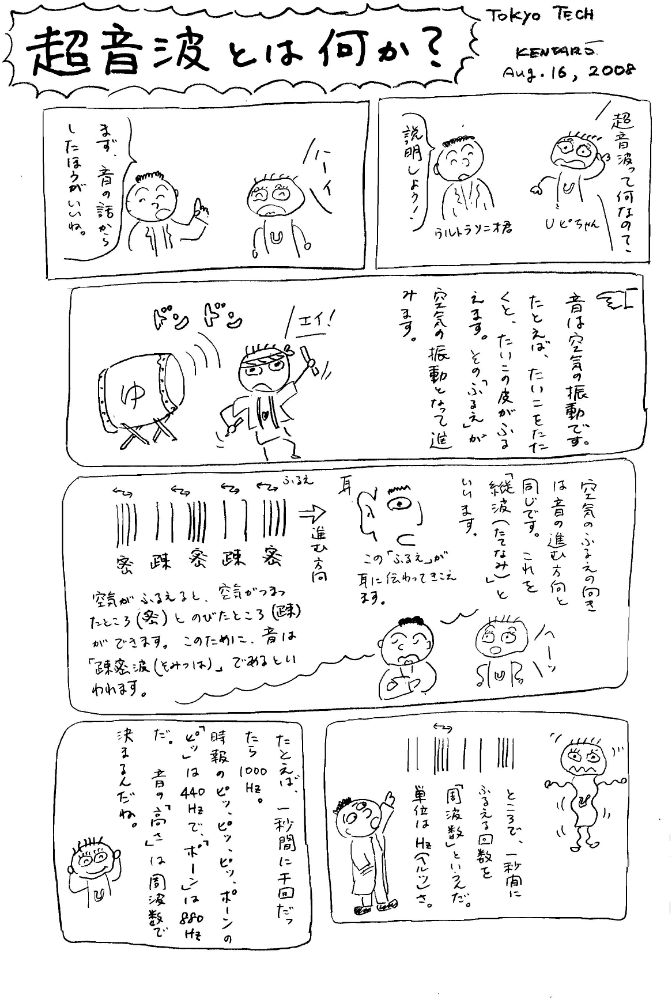 超音波とは何か?
TOKYO TECH
KENTARO.
Aug. 16, 2008
超音波って何なの?
説明しよう!
ウルトラソニオ君
Uピちゃん
まず、音の話から
したほうがいいね。
ハーイ
音は空気の振動です。
たとえば、たいこをたた
くと、たいこの皮がふる
えます。その「ふるえ」が
空気の振動となって進
みます。
エイ!
ドン ドン
ゆ
空気のふるえの向き
は音の進む方向と
同じです。これを
「縦波(たてなみ)」と
いいます。
耳
この「ふるえ」が
耳に伝わってきこえ
ます。
ふるえ
進む方向
密 疎 密 疎 密
空気がふるえると、空気がつまっ
たところ(密)とのびたところ(疎)
ができます。このために、音は
「疎密波(そみつは)」であるとい
われます。
ヘーッ
ところで、一秒間に
ふるえる回数を
「周波数」というんだ。
単位はHz(ヘルツ)さ。
たとえば、一秒間に千回だっ
たら1000Hz。
時報のピッ、ピッ、ピッ、ポーンの
「ピッ」は440Hzで、「ポーン」は880Hz
だ。音の「高さ」は周波数で
決まるんだね。
U